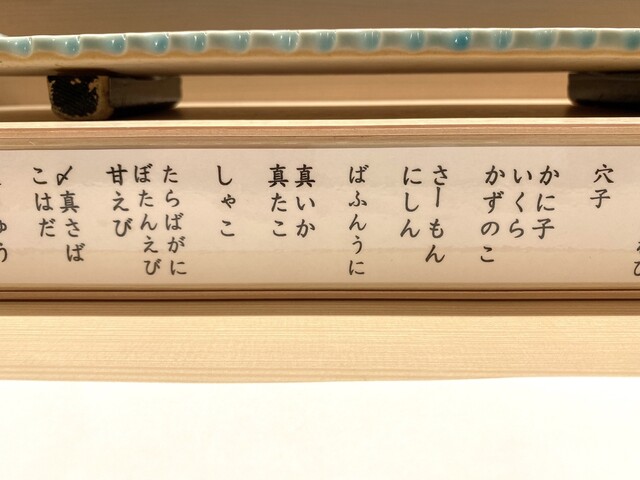 穴子
かに子
いくら
かずのこ
さーもん
にしん
ばふんうに
真いか
真たこ
しゃこ
たらばがに
ぼたんえび
甘えび
〆真さば
こはだ